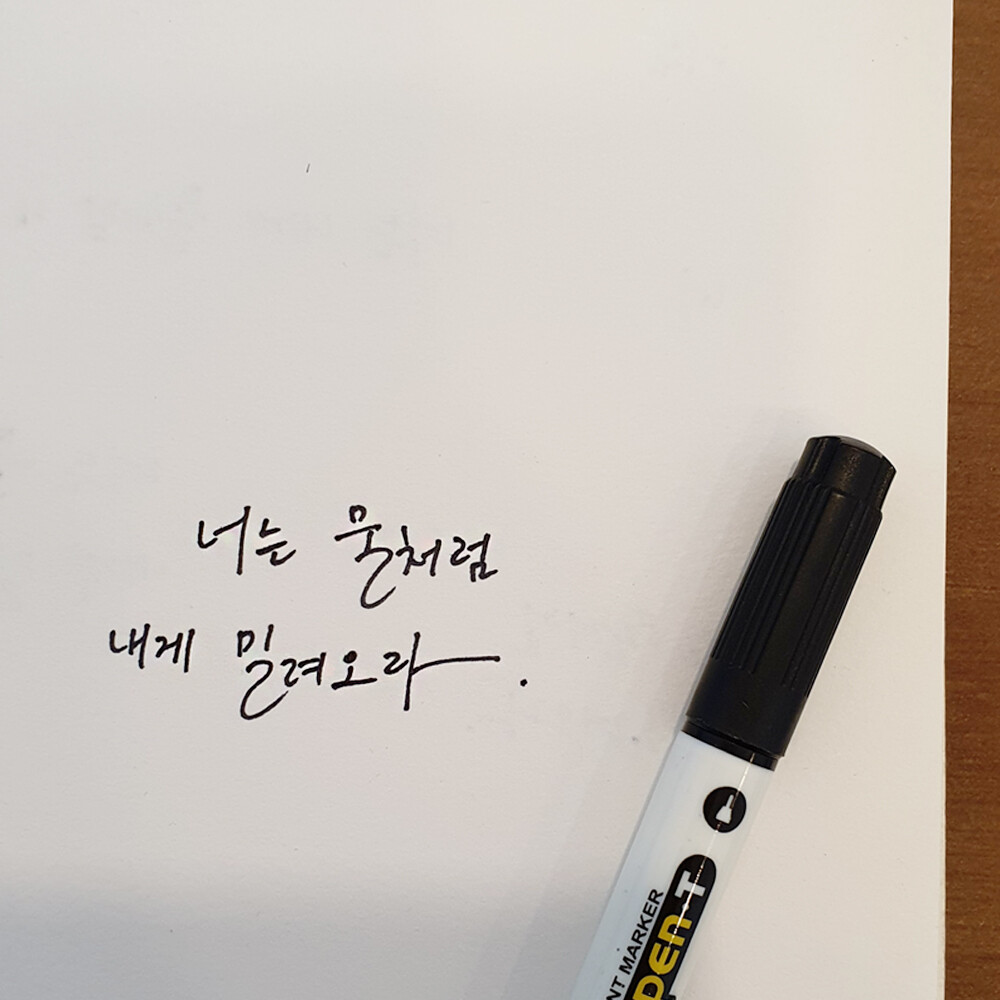 너는 물처럼
내게 밀려오라.
NT MARKER
PEN-T